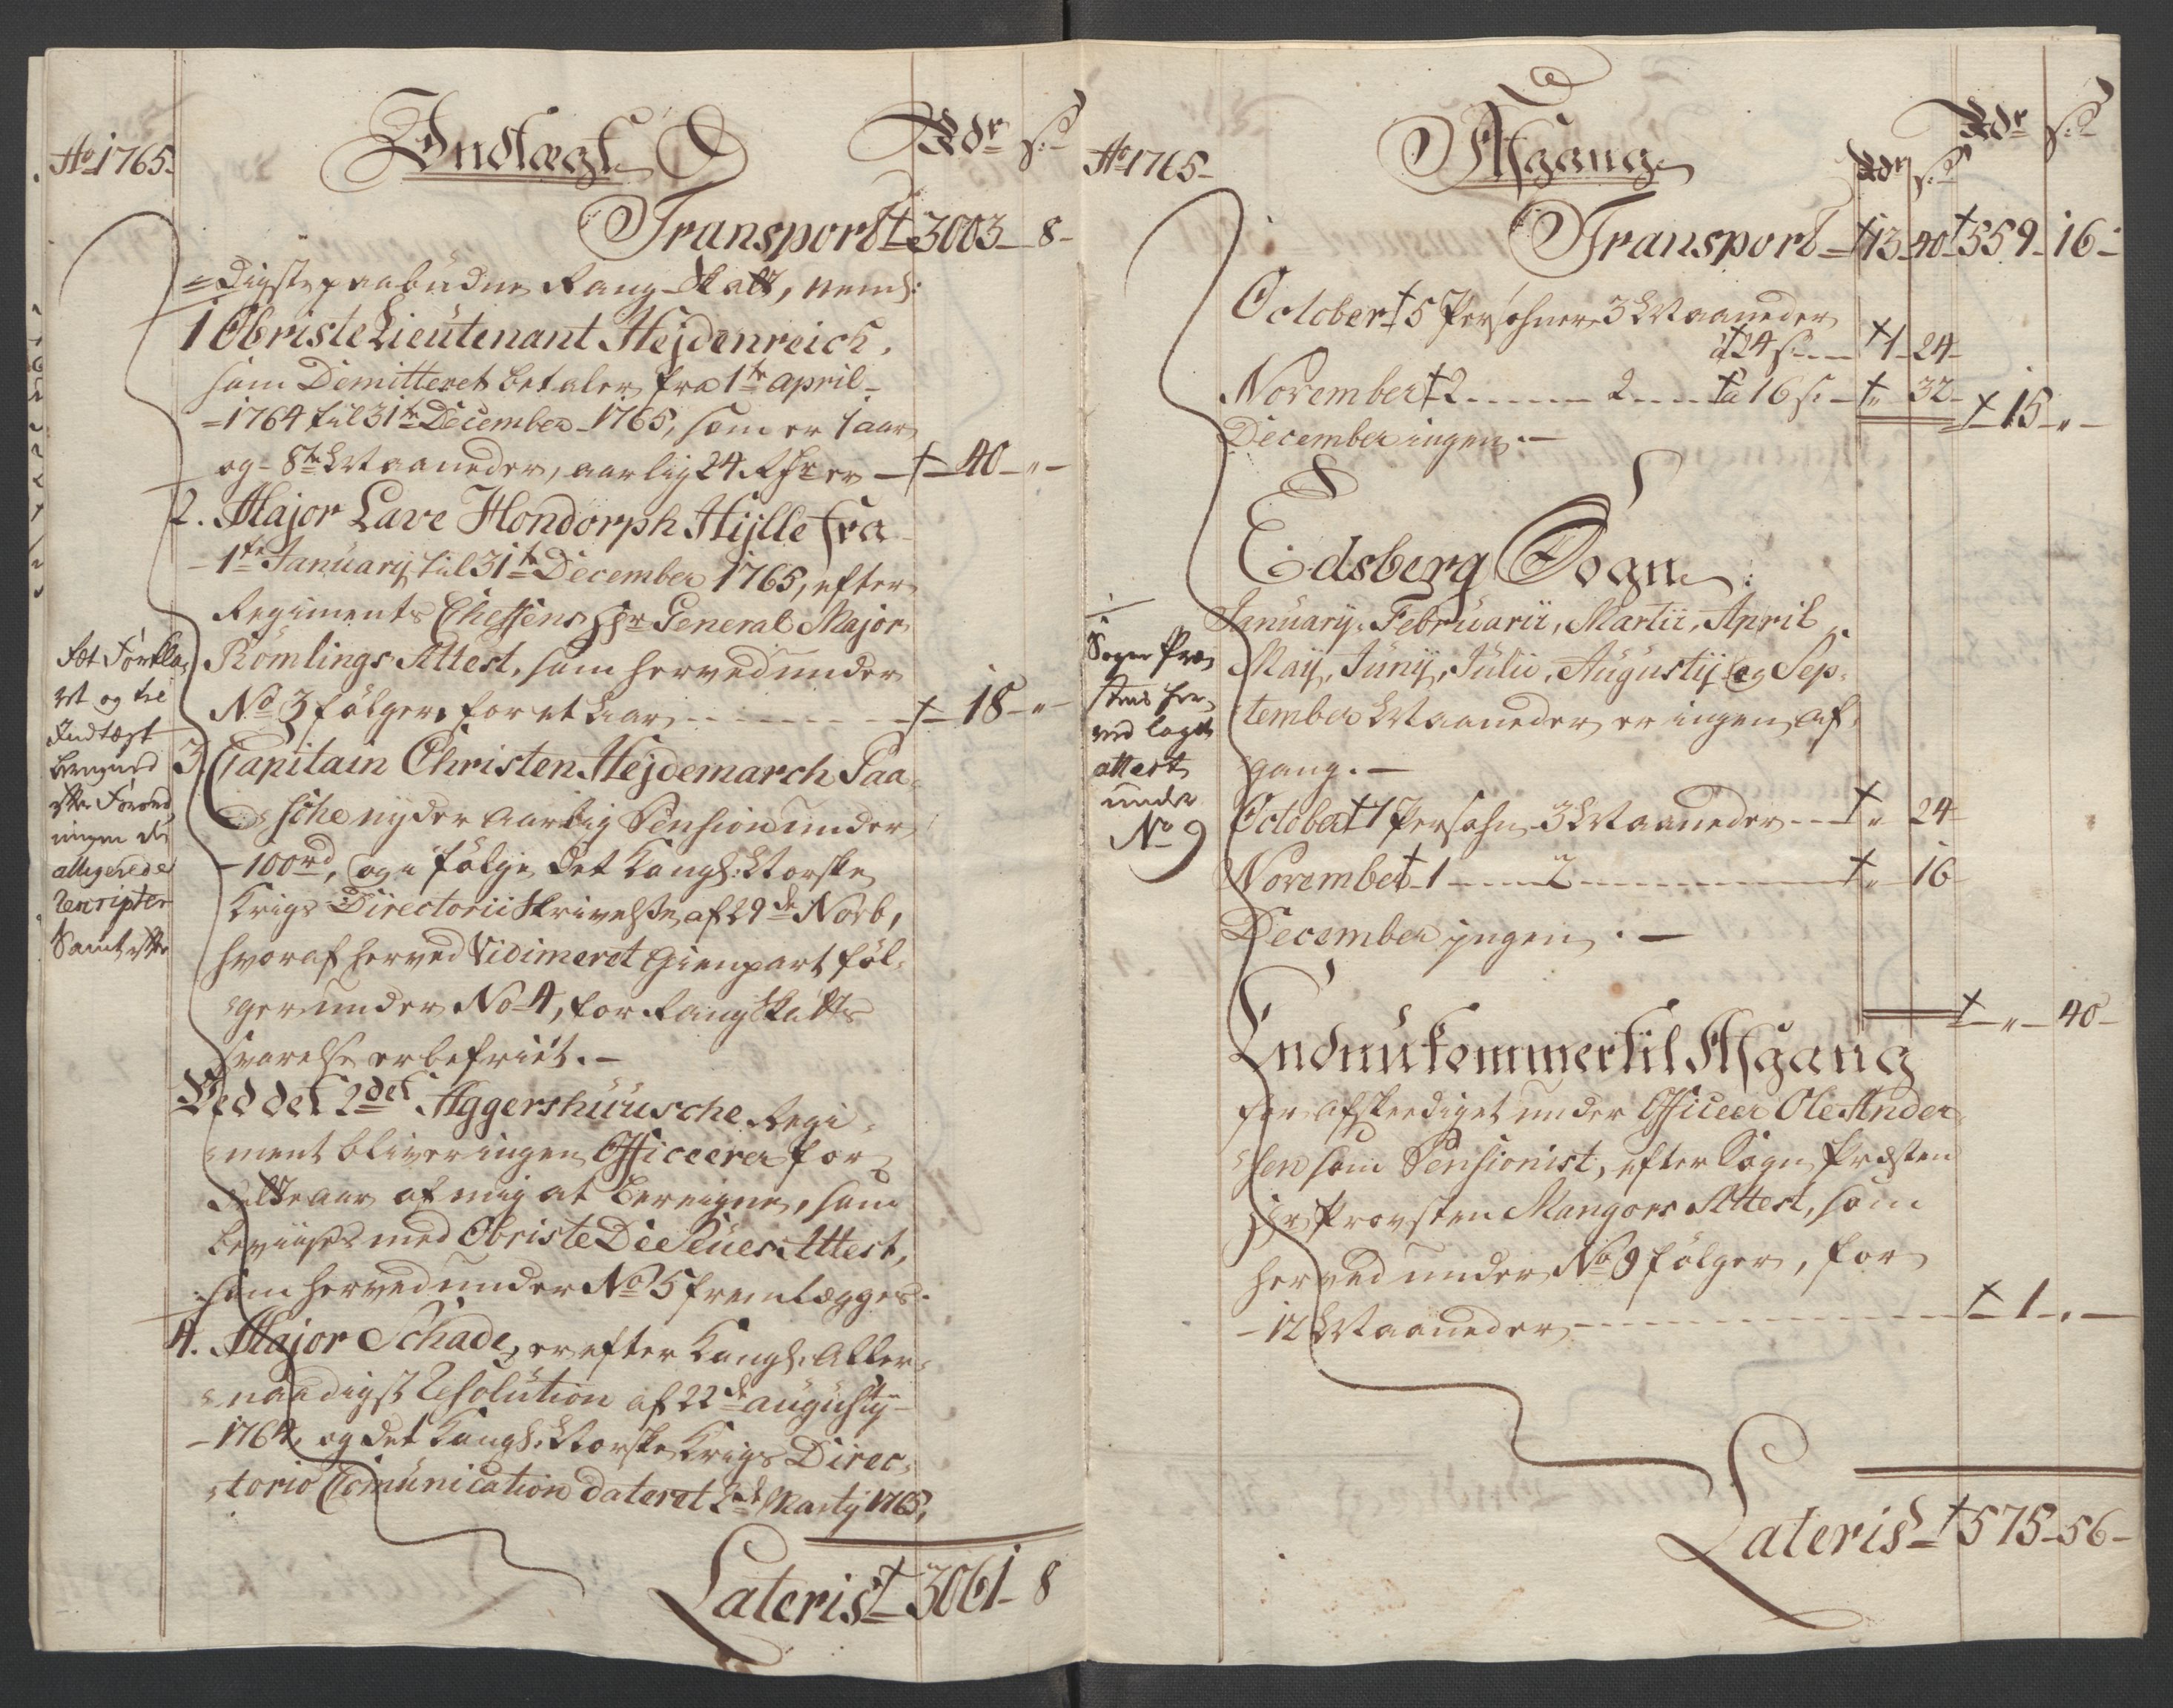 Ao 1765.
Indtægt
Rdr s.
Transport 3003 - 8 -
= digste paabudne Rang-Skatt, neml:
1 Obriste Lieutenant Hejdenreich,
som Demitteret betaler fra 1te April
= 1764 til 31te December 1765, som er 1 aar
og 8te Maaneder, aarlig 24 Rdr er - 40 - " -
2. Major Lave Hondorph Hÿlle fra
- 1te Januarij til 31te December 1765, efter
Regiments Cheffens Hr General Major
Römlings Attest, som herved under
No 3 følger, for et Aar - 18 - " -
3. Capitain Christen Hejdemarch Paa-
sche nyder aarlig Pension under
- 100 rd, og i følge det Kongl: Norske
Krigs Directorii Skrivelse af 29de Novb,
hvoraf herved Vidimeret Gienpart føl-
ger under No 4, for Rang Skatts
svarelse er befriet. -
Ved det 2det Aggershuusche Regi-
ment bliver ingen Officerer for
dette aar af mig at beregne, som
beviises med Obriste De Seues Attest,
som herved under No 5 fremlægges.
4. Major Schade, er efter Kongl. Aller-
naadigst Resolution af 22de augustij
- 1764, og det Kongl. Norske Krigs Direc-
torio Comunication dateret 2de Martij 1765,
Lateris 3061 - 8
og til
Indtægt
beregned
efter Forord
ningen de
allegerede
Rescripter
Samt
Ao 1765 -
Afgang
Rdr s.
Rdr s.
Transport - 13 - 40 559 - 16 -
October 5 Persohner 3 Maaneder
a 24 s. - 1 - 24 -
November 2 - 2 - a 16 s. - " 32 - 15 - " -
December ingen. -
Edsberg Sogn:
Januarij, Februarii, Martii, April
Maij, Junij, Julii, Augustij og Sep-
tember Maaneder er ingen af-
gang. -
October 1 Persohn 3 Maaneder - " 24 -
November 1 - 2 - " - 16
December ingen. -
- " - 40 -
Endnu kommer til Afgang
for afskeediget under Officeer Ole Ander
sen som Pensionist, efter Sogne Præsten
Hr Provsten Mangors Attest, som
herved under No 9 følger, for
- 12 Maaneder - 1 - " -
Lateris - 575 - 56 -
Sogne Præ
stens her
ved lagte
attest
under
No 9